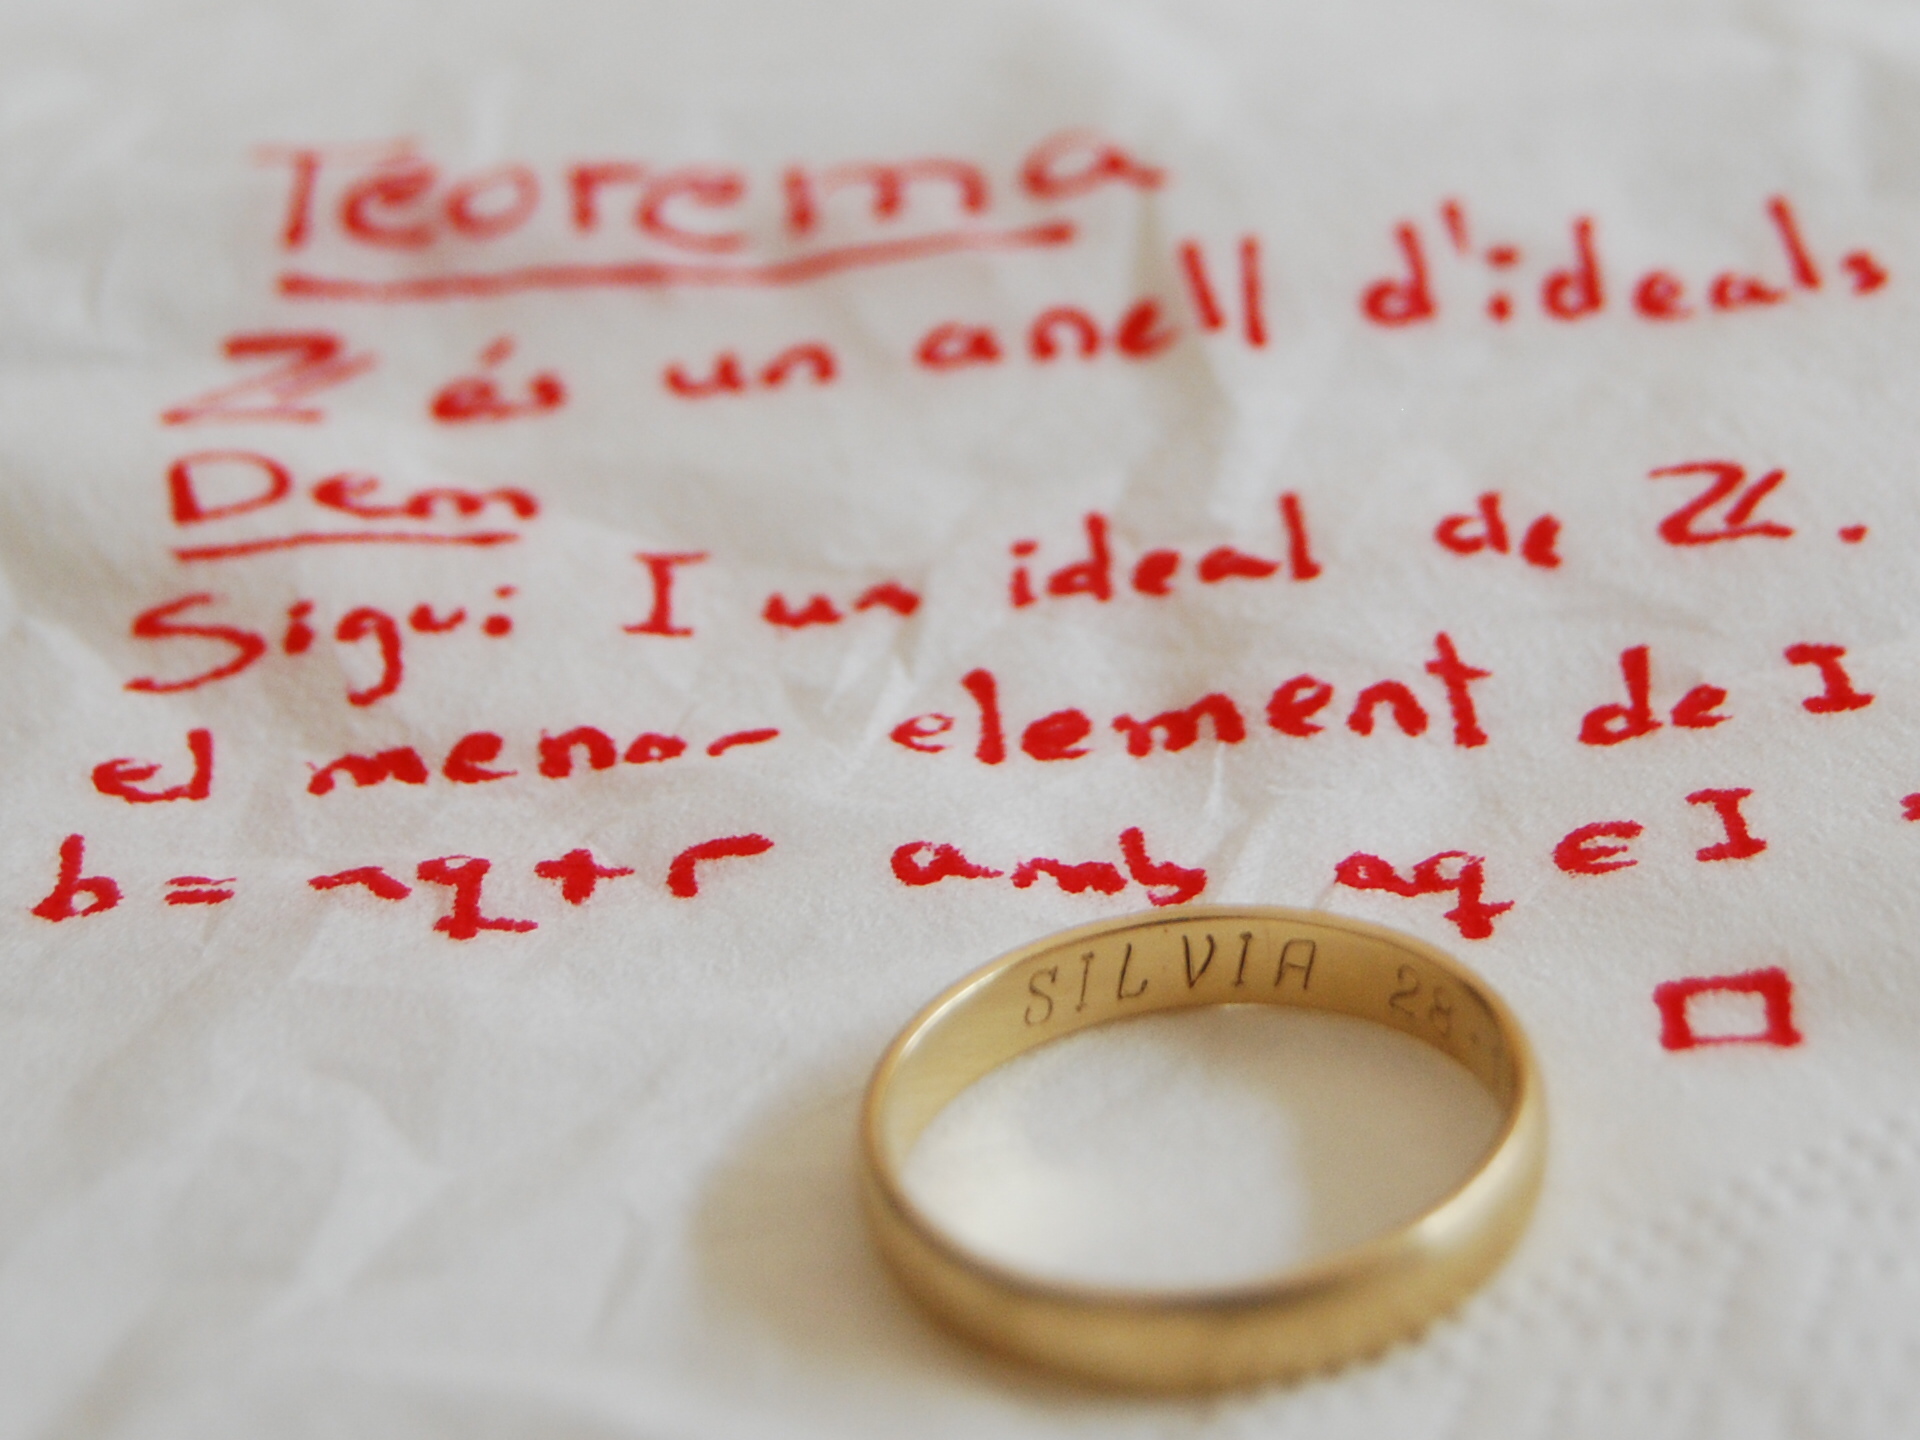 Teorema
ℤ és un anell d'ideals
Dem
Sigui I un ideal de ℤ.
el menor element de I
b = aq + r amb aq ∈ I
□
SILVIA 28.